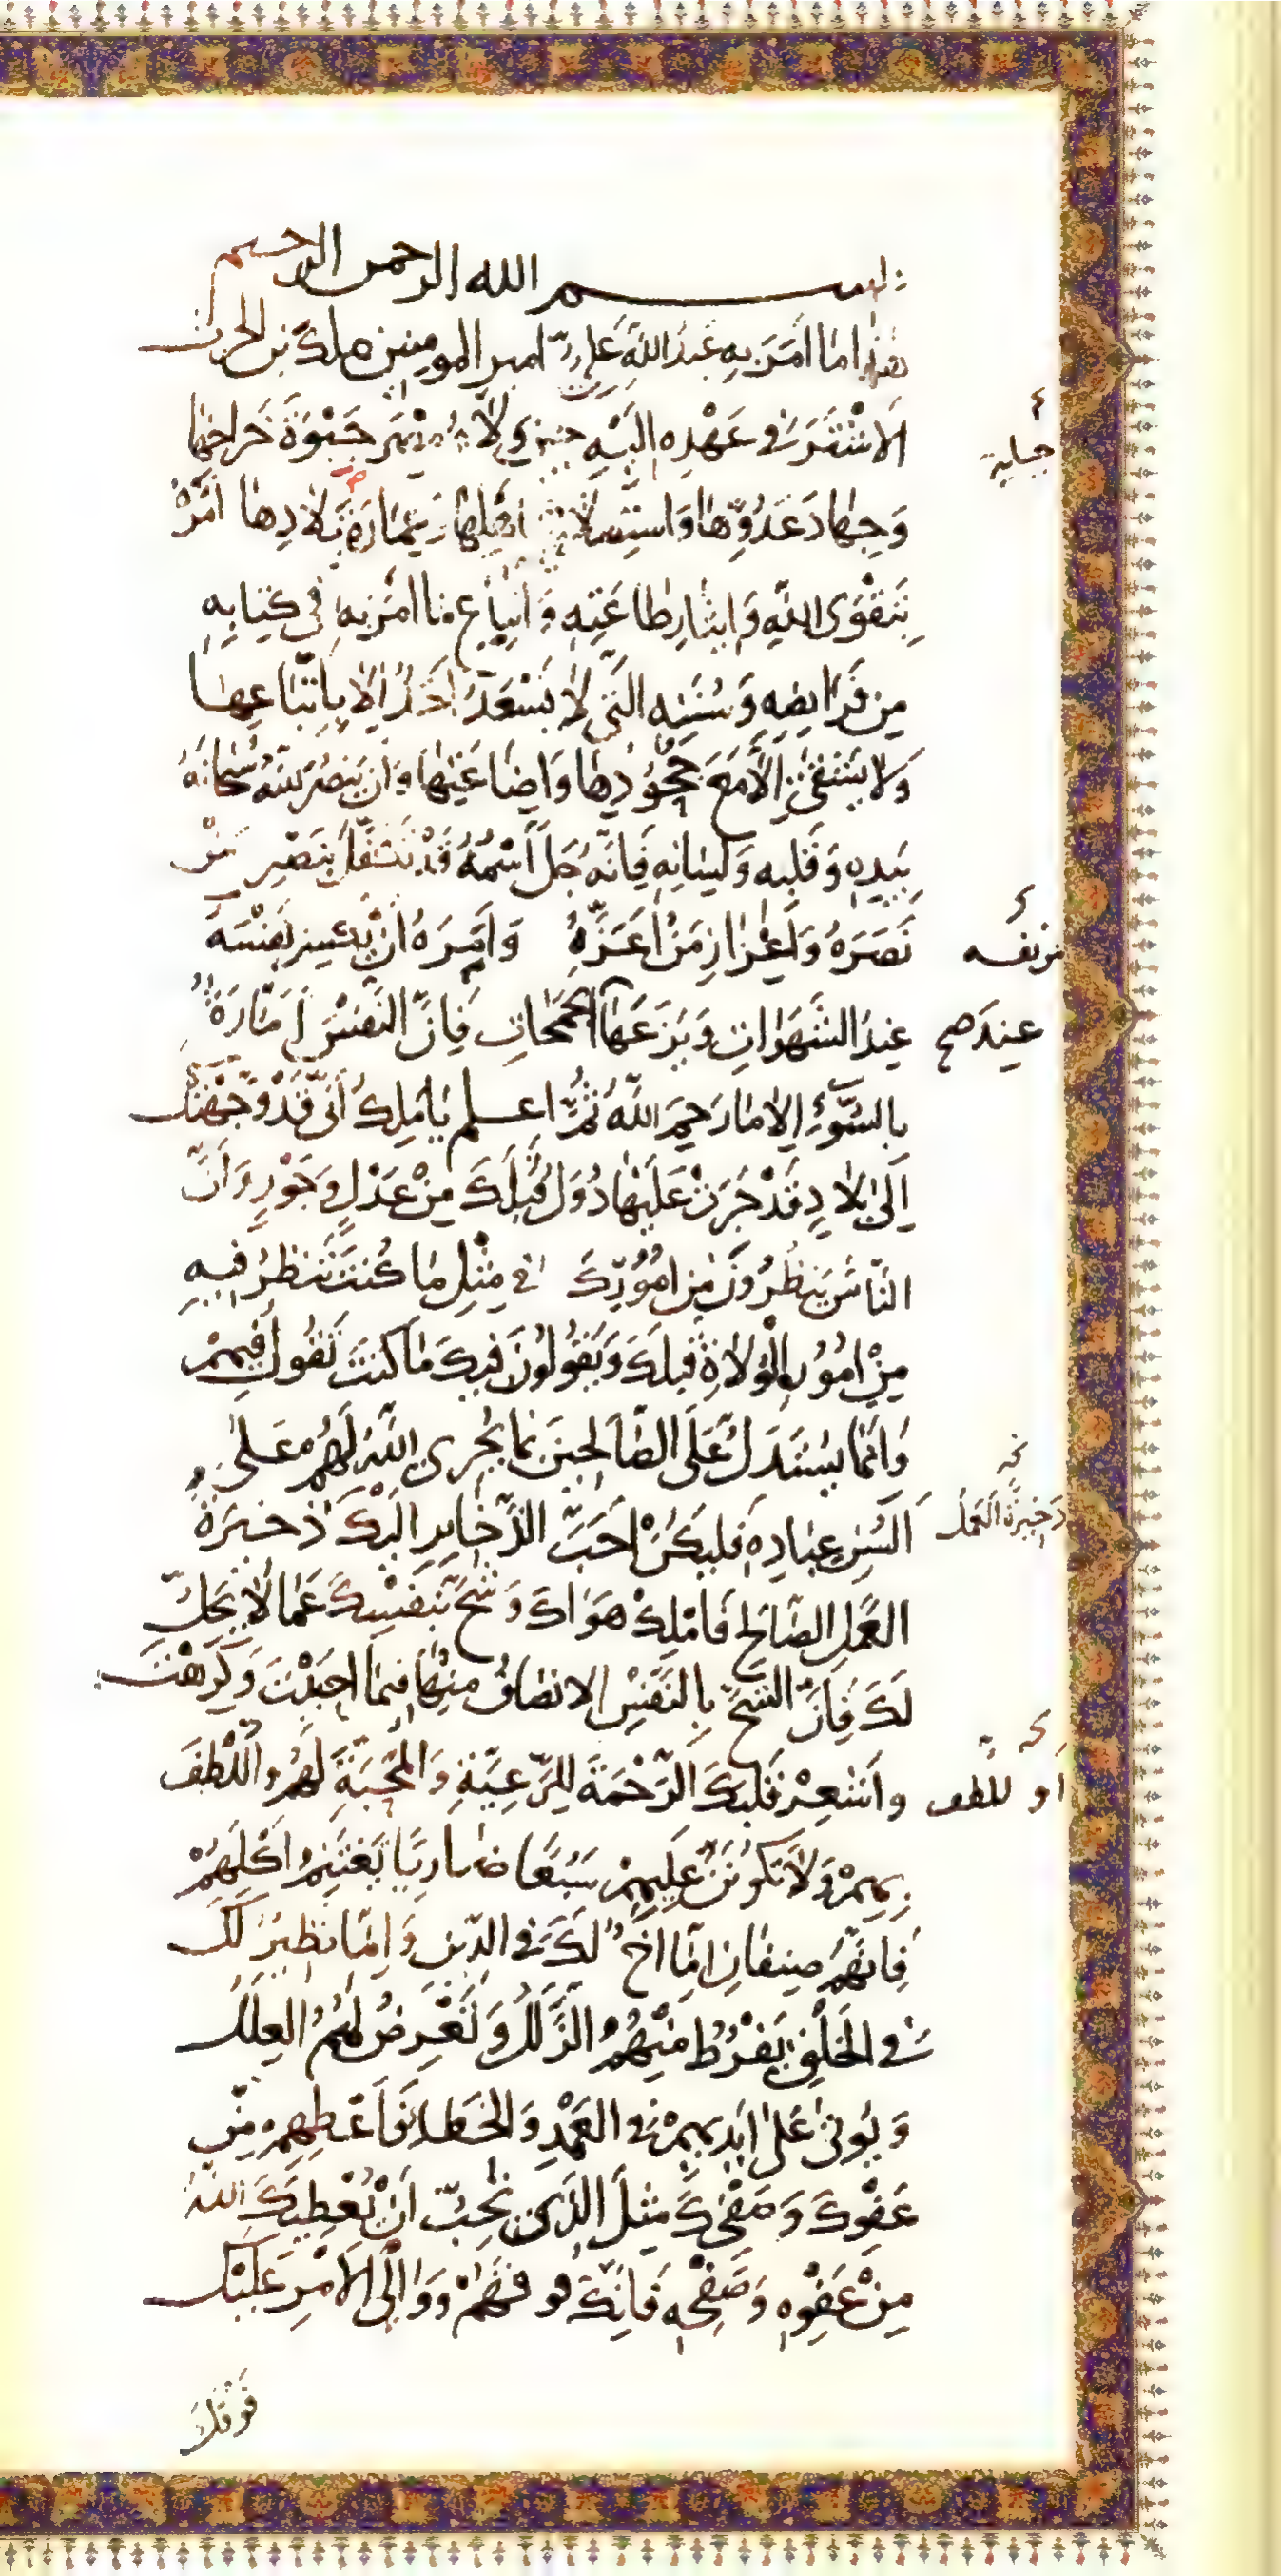 بسم الله الرحمن الرحيم
هذا ما امَرَ بِهِ عَبدُ اللهِ عَلِيّ امير المومنين ملك بن الحرث
الاَشْتَرَ في عَهْدِهِ اِلَيْهِ حينَ وَلاّهُ مِصْرَ جَبْوَةَ خَراجِهَا
جباية
وَجِهادَ عَدُوِّهَا وَاستِصلاحَ اَهْلِهَا وَعِمَارَةَ بِلادِهَا اَمَرَهُ
بِتَقْوَى اللهِ وَايثارِ طَاعَتِهِ وَاتِّبَاعِ مَا اَمَرَ بِهِ في كِتابِهِ
مِن فَرَايضِهِ وَسُنَنِهِ الَّتي لا يَسْعَدُ اَحَدٌ اِلا بِاتِّبَاعِهَا
وَلا يَشْقَى اِلاّ مَعَ جُحُودِهَا وَاِضَاعَتِهَا وَاَن يَنصُرَ اللهَ سُبحَانَهُ
بِيَدِهِ وَقَلبِهِ وَلِسَانِهِ فَاِنَّهُ جَلَّ اسْمُهُ قَدْ تَكَفَّلَ بِنَصْرِ مَنْ
نَصَرَهُ وَاِعْزازِ مَنْ اَعَزَّهُ وَاَمَرَهُ اَنْ يَكْسِرَ نَفْسَهُ
من نفسه
عِندَ الشَّهَوَاتِ وَيَزَعَهَا الجَمَحَاتِ فَاِنَّ النَّفْسَ اَمَّارَةٌ
عِندَ صح
بِالسُّوءِ اِلا مَا رَحِمَ اللهُ ثُمَّ اعلم يَا مَلِكُ اَنّي قَدْ وَجَّهْتُكَ
اِلَى بِلادٍ قَدْ جَرَتْ عَلَيْهَا دُوَلٌ قَبْلَكَ مِنْ عَدْلٍ وَجَوْرٍ وَاَنَّ
النّاسَ يَنظُرُونَ مِن اُمُورِكَ في مِثْلِ مَا كُنتَ تَنظُرُ فيهِ
مِنْ اُمُورِ الْوُلاةِ قَبلَكَ وَيَقُولُونَ فيكَ مَا كنتَ تَقُولُ فيهِمْ
وَاِنَّمَا يُستَدَلُّ عَلَى الصَّالِحينَ بِمَا يُجْرِي اللهُ لَهُمْ عَلَى
اَلْسُنِ عِبَادِهِ فَليَكُنْ اَحَبَّ الذَّخَايِرِ اِلَيْكَ ذَخيرَةُ
ذَخيرَةُ العَمَل
العَمَلِ الصَّالِحِ فَامْلِكْ هَوَاكَ وَشُحَّ بِنَفْسِكَ عَمّا لا يَحِلُّ
لَكَ فَاِنَّ الشُّحَّ بِالنَّفْسِ الانصَافُ مِنْهَا فيمَا اَحبَبْتَ وَكَرِهْتَ
وَاَشعِرْ قَلبَكَ الرَّحْمَةَ لِلرَّعِيَّةِ وَالمَحَبَّةَ لَهُمْ وَاللُّطْفَ
او للُّطف
بِهِمْ وَلا تَكُونَنَّ عَلَيهِمْ سَبُعًا ضَارِيًا تَغْتَنِمُ اَكْلَهُمْ
فَاِنَّهُمْ صِنفَانِ اِمَّا اَخٌ لَكَ في الدّينِ وَاِمَّا نَظيرٌ لَكَ
في الْخَلْقِ يَفْرُطُ مِنْهُمُ الزَّلَلُ وَتَعْرِضُ لَهُمُ العِلَلُ
وَيُوتَى عَلَى اَيديهِمْ في العَمْدِ وَالْخَطَا فَاَعْطِهِمْ مِن
عَفْوِكَ وَصَفْحِكَ مِثلَ الَّذي تُحِبُّ اَنْ يُعْطِيَكَ اللهُ
مِنْ عَفْوِهِ وَصَفْحِهِ فَاِنَّكَ فَوقَهُمْ وَوَالِي الاَمْرِ عَلَيْكَ
فَوْقَكَ